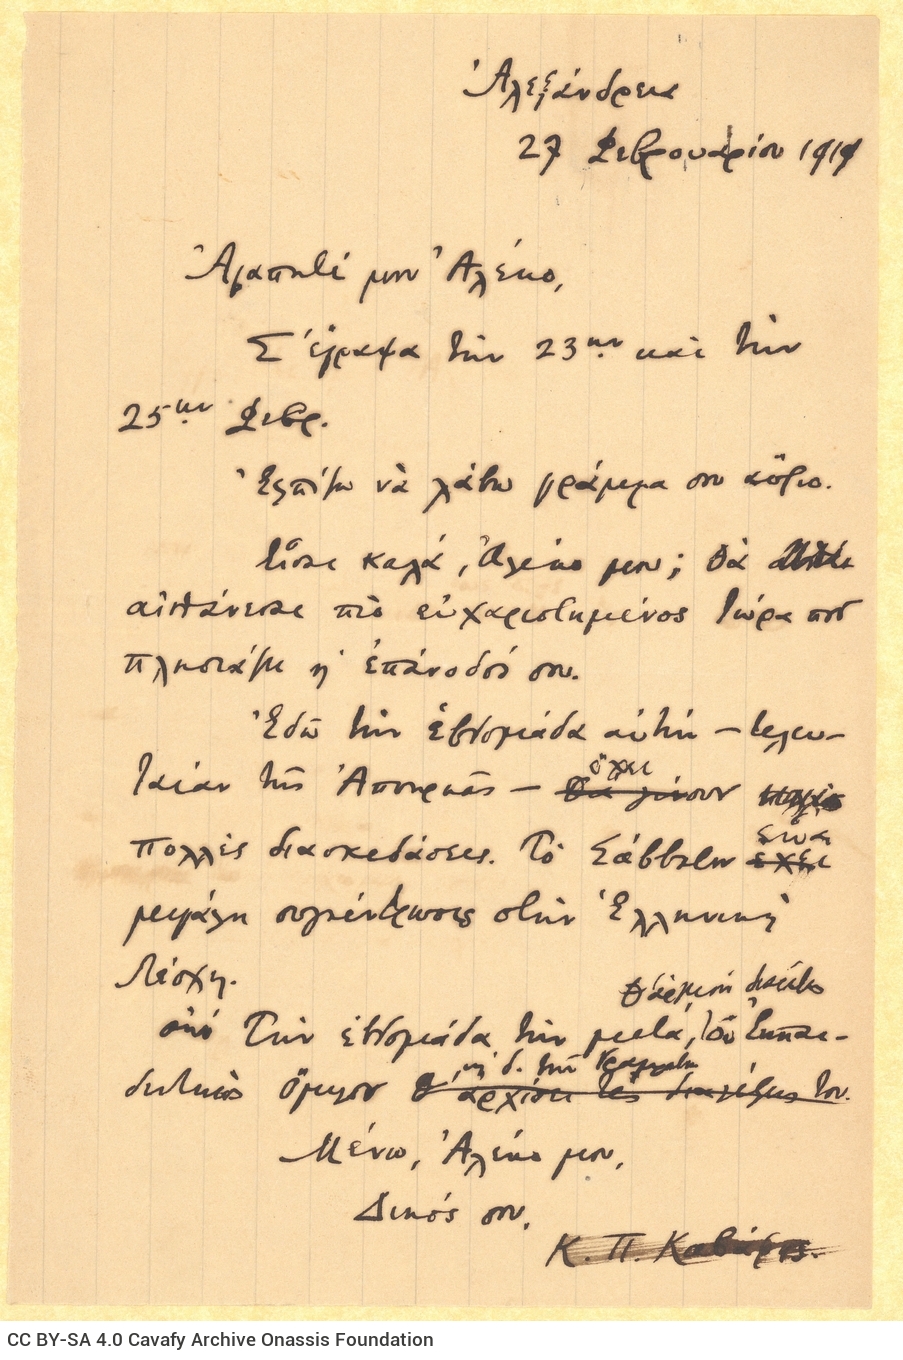 Ἀλεξάνδρεια
27 Φεβρουαρίου 1919
Ἀγαπητέ μου Ἀλέκο,
Σ' ἔγραψα τὴν 23ην καὶ τὴν
25ην Φεβρ.
Ἐλπίζω νὰ λάβω γράμμα σου αὔριο.
Εἶσαι καλά, Ἀλέκο μου; Θὰ
αἰσθάνεσαι πιὸ εὐχαριστημένος τώρα ποὺ
πλησιάζει ἡ ἐπάνοδός σου.
Ἐδῶ τὴν ἑβδομάδα αὐτὴν – τελευ-
ταίαν τῆς Ἀποκρηᾶς – ἔχει
πολλὲς διασκεδάσεις. Τὸ Σάββατον εἶναι
ἔχει
μεγάλη συγκέντρωσις στὴν Ἑλληνικὴ
Λέσχη.
ἀπό Τὴν ἑβδομάδα τὴν μετά, τοῦ Ἐκπαι-
δευτικοῦ Ὁμίλου
ἀρχίσει τὲς διαλέξεις του.
Μένω, Ἀλέκο μου,
Δικός σου,
Κ. Π. Καβάφης.
CC BY-SA 4.0 Cavafy Archive Onassis Foundation